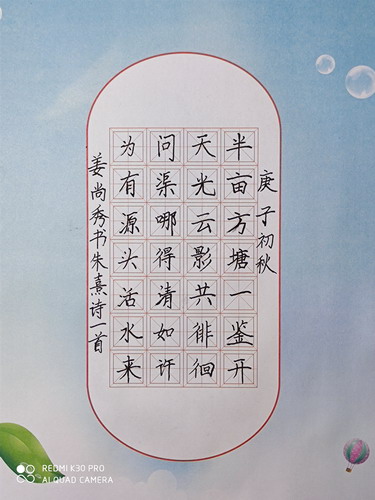 庚子初秋
半亩方塘一鉴开
天光云影共徘徊
问渠哪得清如许
为有源头活水来
姜尚秀书朱熹诗一首
REDMI K30 PRO
AI QUAD CAMERA